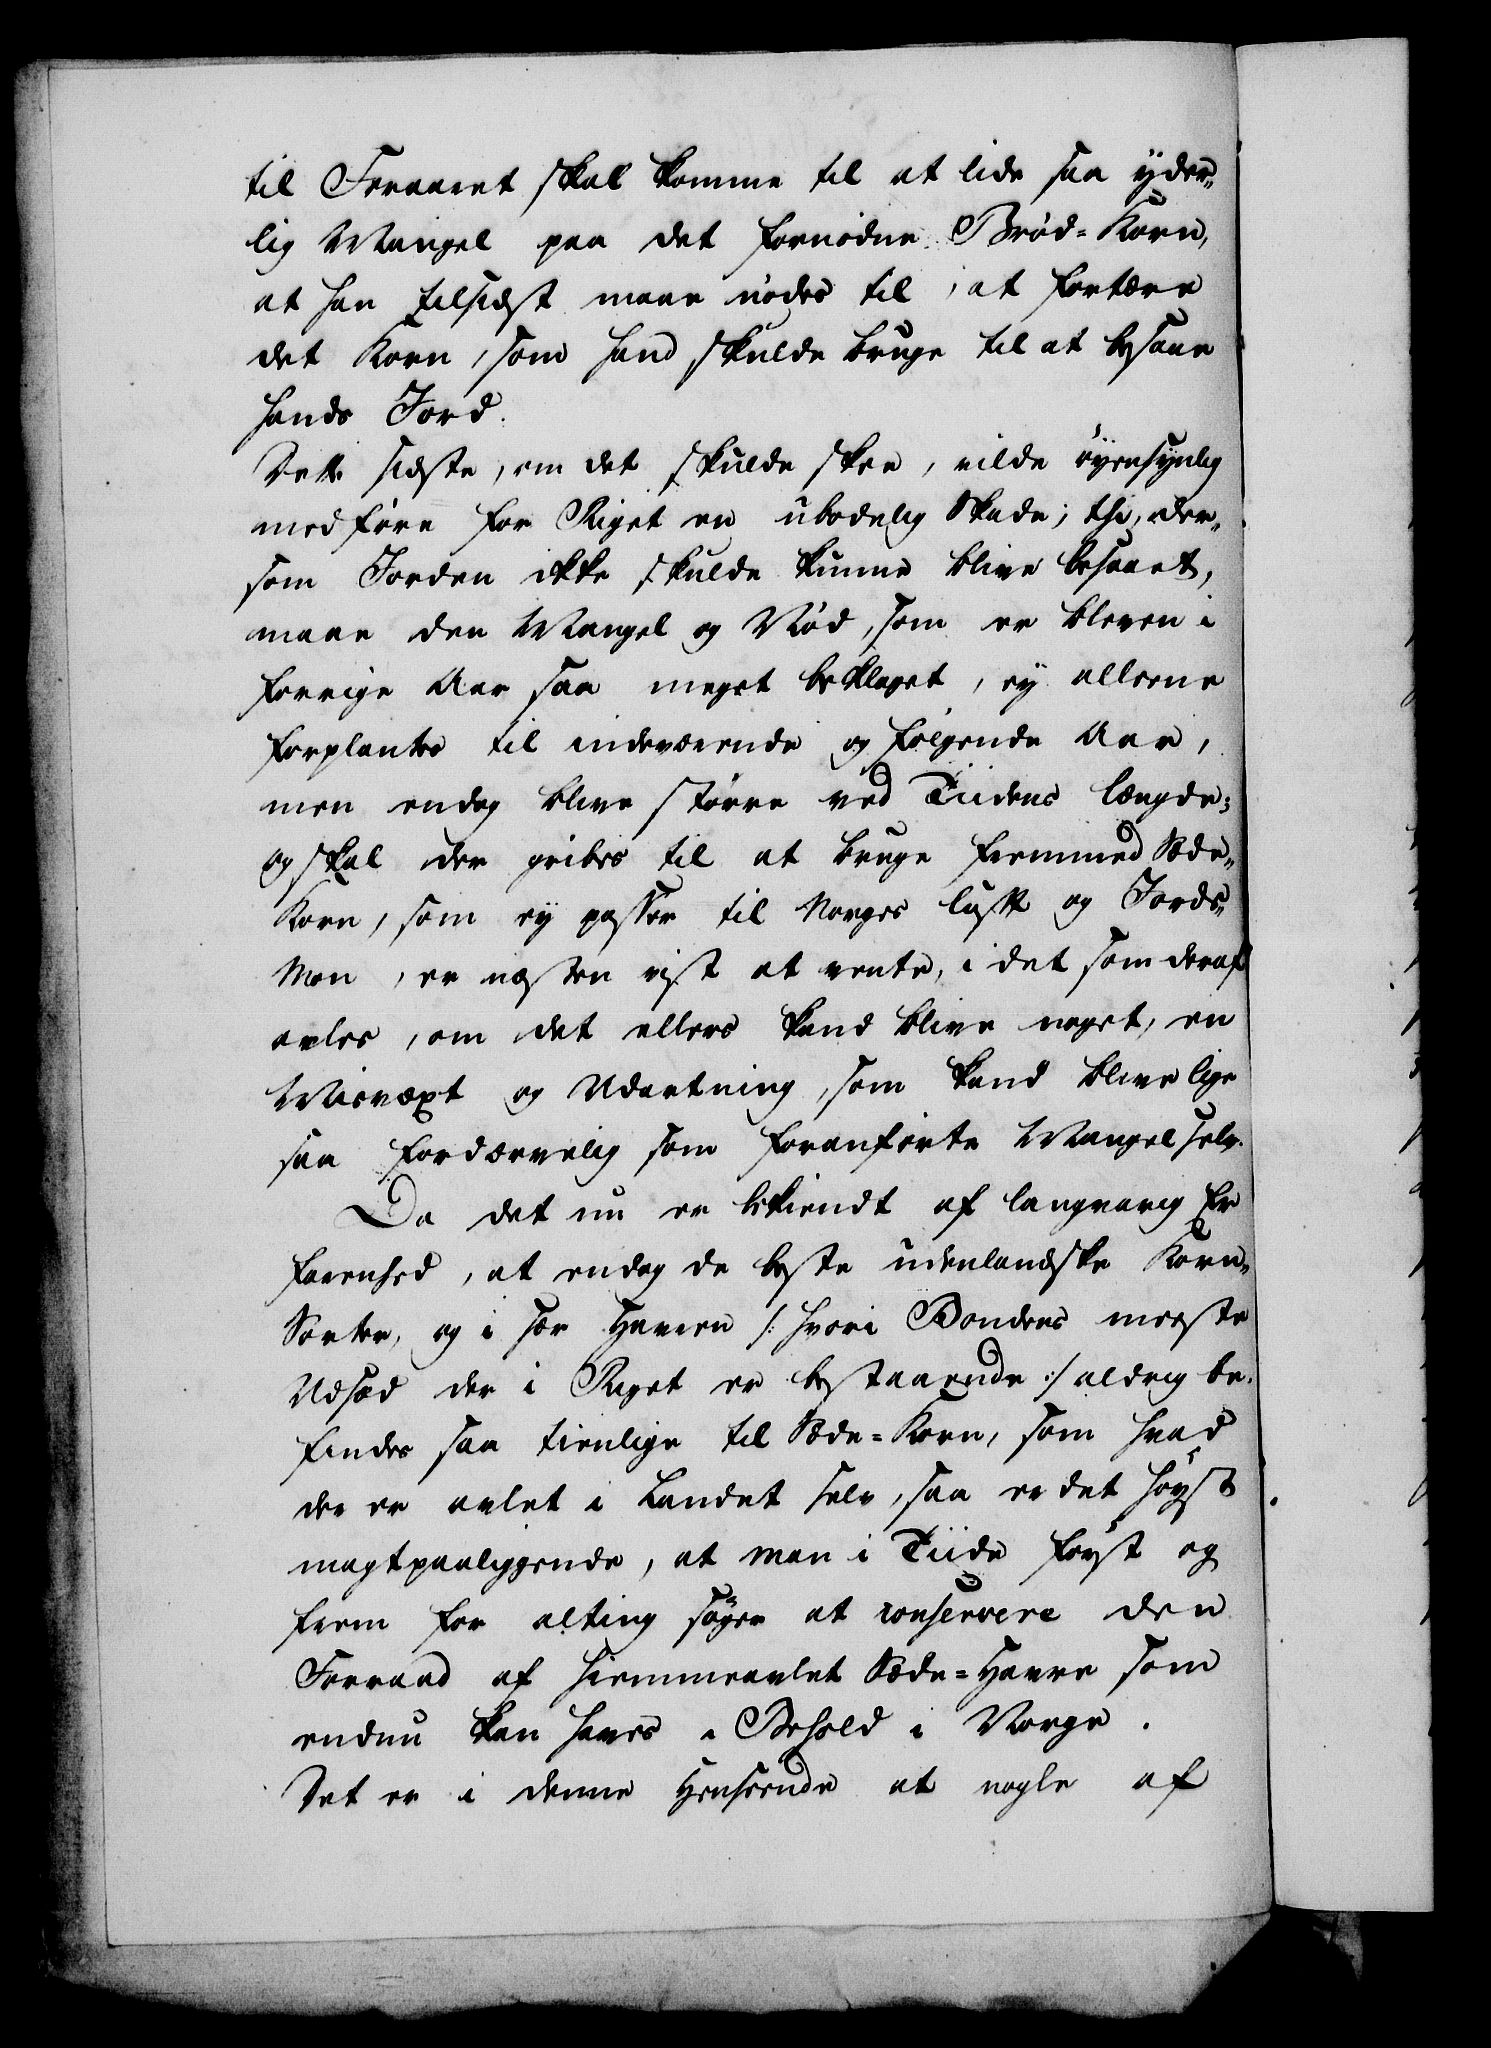 til Foraaret skal komme til at lide saa yder-
lig Mangel paa det fornødne Brød-Korn,
at han tilsidst maae nødes til, at fortære
det Korn, som hand skulde bruge til at besaae
hands Jord.
Dette sidste, om det skulde skee, vilde øyensynlig
medføre for Riget en ubodelig Skade; thi, der-
som Jorden ikke skulde kunne blive besaaet,
maae den Mangel og Nød, som er bleven i
forrige Aar saa meget beklaget, ey alleene
forplantes til indeværende og følgende Aar,
men endog blive større ved Tiidens længde;
og skal der gribes til at bruge fremmed Sæde-
Korn, som ey passer til Norges luft og Jords-
Mon, er næsten vist at vente, i det som deraf
avles, om det ellers kand blive noget, en
Misvæxt og Udartning, som kand blive lige
saa fordærvelig som foranførte Mangel selv.
Da det nu er bekiendt af langvarig Er
farenhed, at endog de beste udenlandske Korn-
Sorter, og i sær Havren /: hvori Bondens meeste
Udsæd der i Riget er bestaaende :/ aldrig be-
findes saa tienlige til Sæde-Korn, som hvad
der er avlet i Landet selv, saa er det høyst
magtpaaliggende, at man i Tiide først og
frem for alting søger at conservere den
Forraad af hiemmeavlet Sæde-Havre som
endnu kan haves i Behold i Norge.
Det er i denne Henseende at nogle af